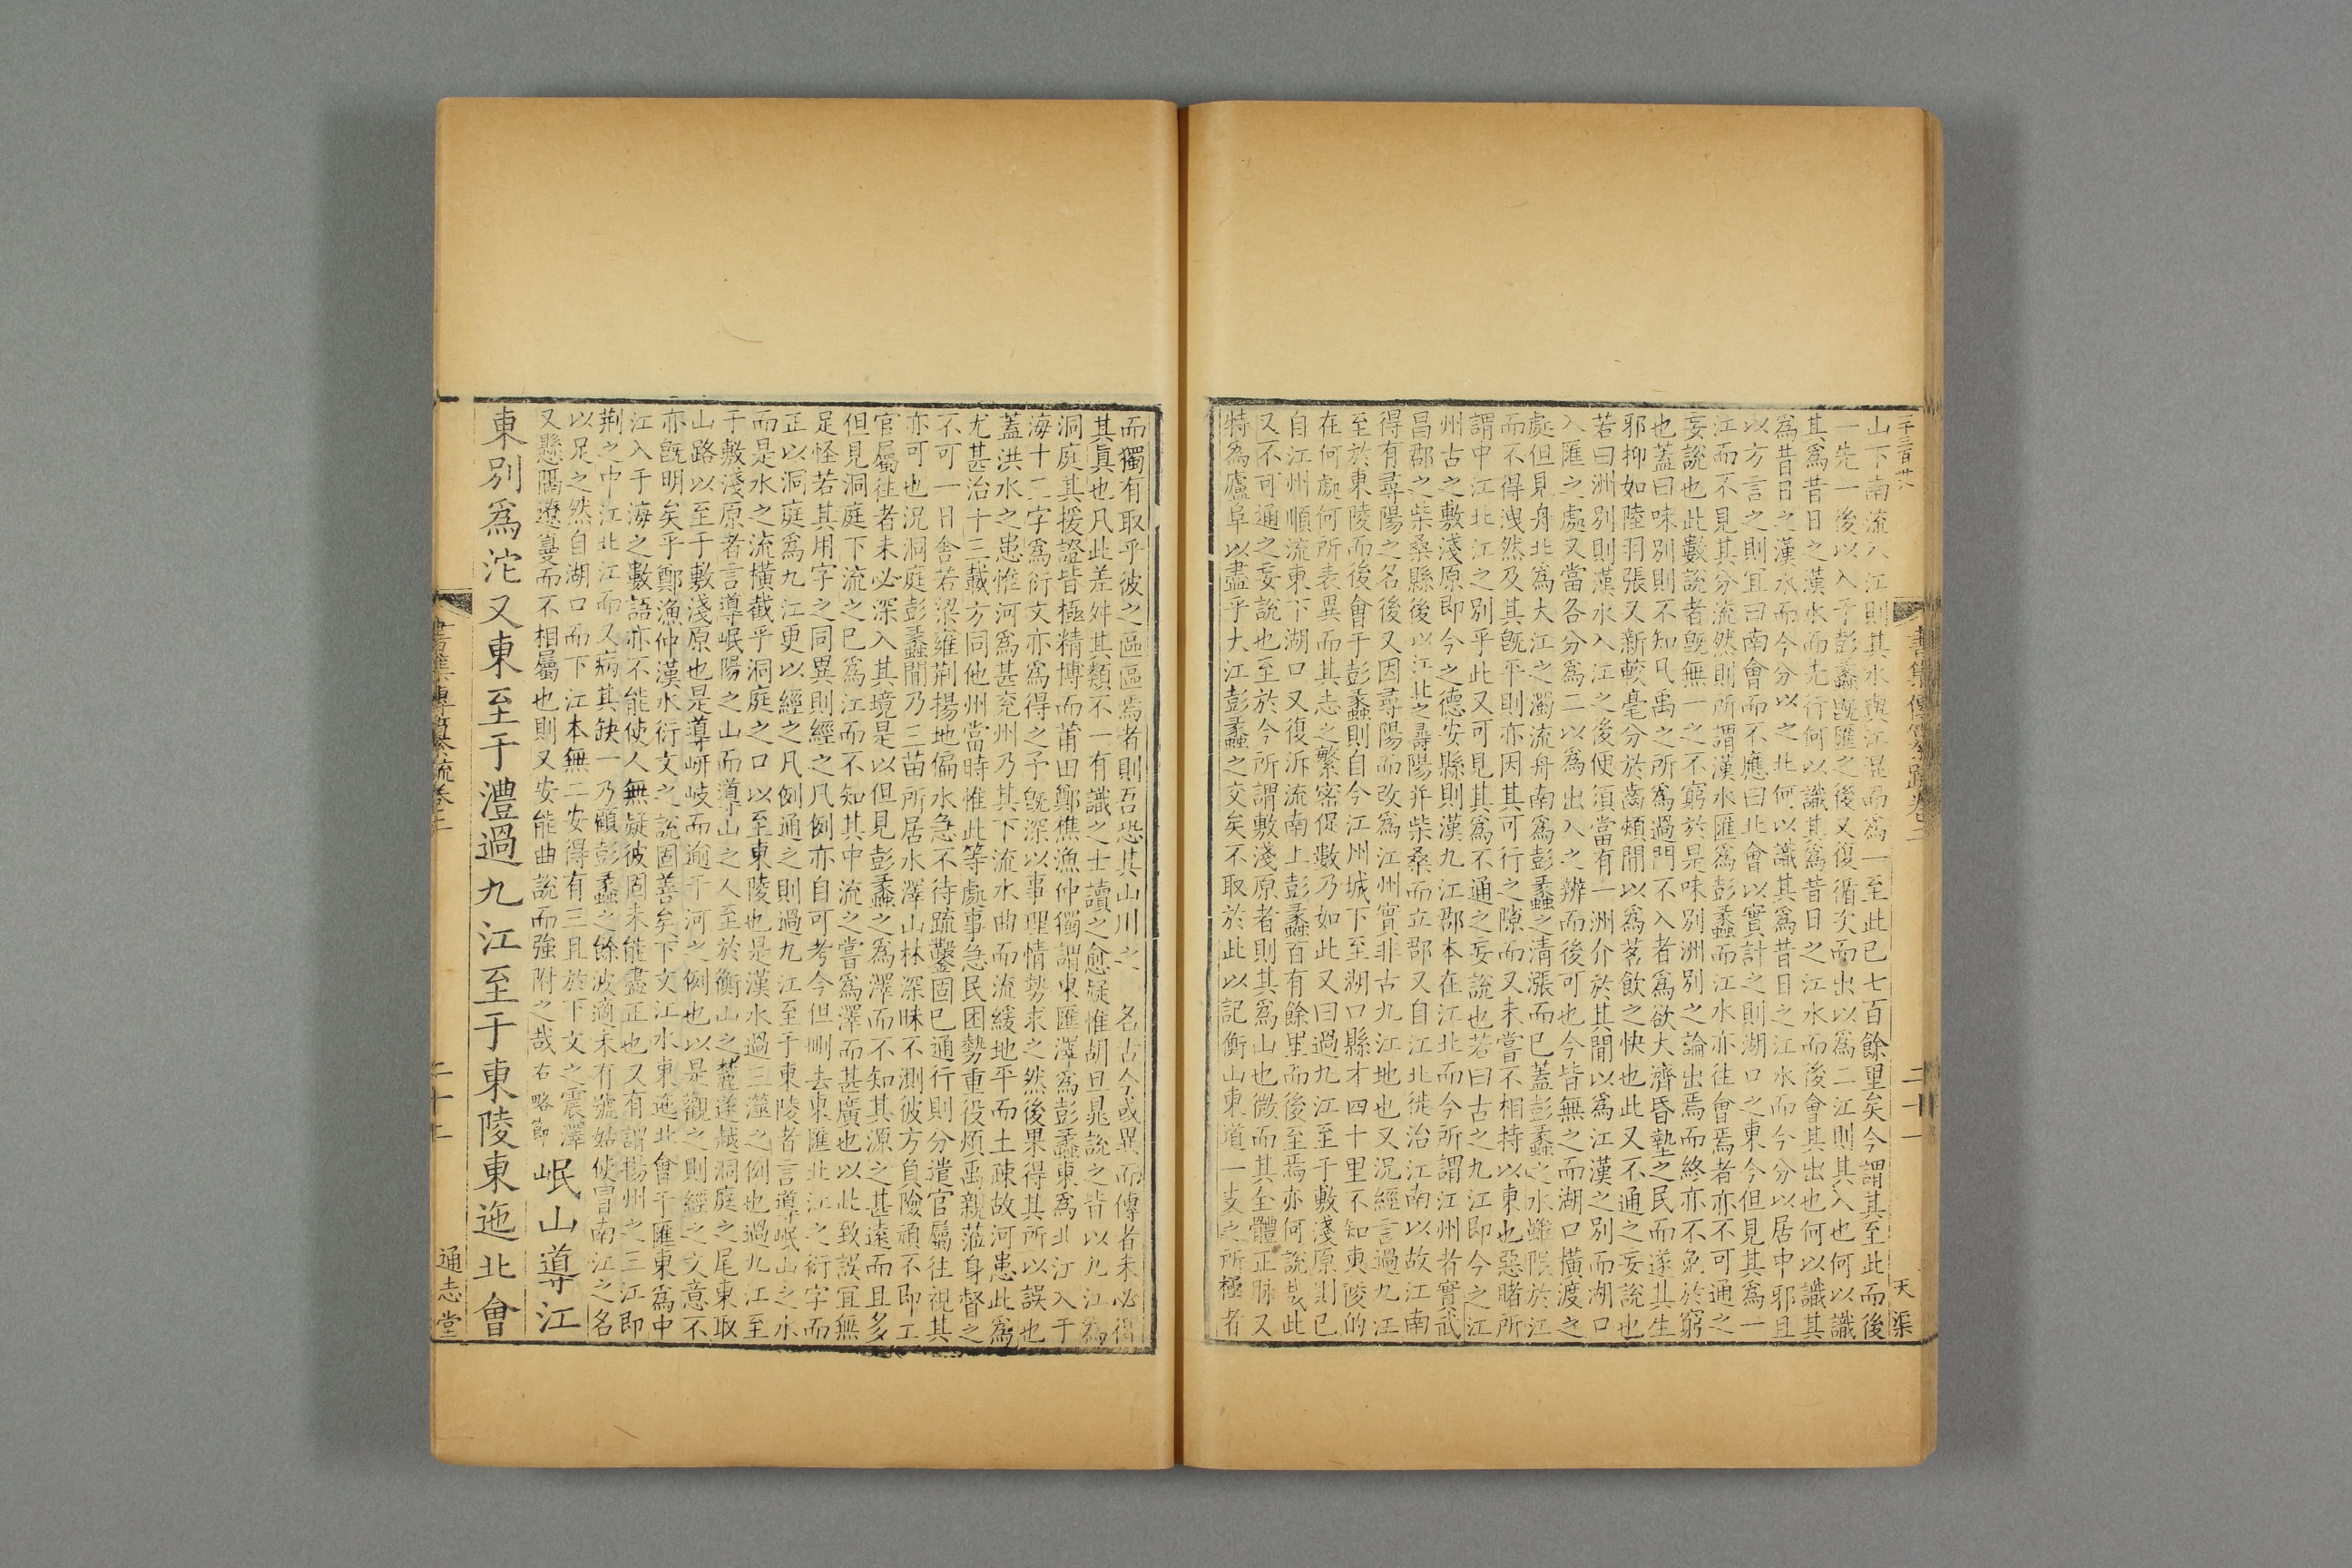 山下南流入江則其水與江混而爲一至此已七百餘里矣今謂其至此而後
一先一後以入于彭蠡旣匯之後又復循次而出以爲二江則其入也何以識
其爲昔日之漢水而先行何以識其爲昔日之江水而後會其出也何以識其
爲昔日之漢水而今分以之北何以識其爲昔日之江水而今分以居中邪且
以方言之則宜曰南會而不應曰北會以實計之則湖口之東今但見其爲一
江而不見其分流然則所謂漢水匯爲彭蠡而江水亦往會焉者亦不可通之
妄說也此數說者旣無一之不窮於是味別洲別之論出焉而終亦不免於窮
也蓋曰味別則不知凡禹之所爲過門不入者爲欲大濟昏墊之民而遂其生
邪抑如陸羽張又新較毫分於齒頰閒以爲茗飲之快也此又不通之妄說也
若曰洲別則漢水入江之後便須當有一洲介於其閒以爲江漢之別而湖口
入匯之處又當各分爲二以爲出入之辨而後可也今皆無之而湖口橫渡之
處但見舟北爲大江之濁流舟南爲彭蠡之清漲而已蓋彭蠡之水雖限於江
而不得洩然及其旣平則亦因其可行之隙而又未嘗不相持以東也惡睹所
謂中江北江之別乎此又可見其爲不通之妄說也若曰古之九江即今之江
州古之敷淺原即今之德安縣則漢九江郡本在江北而今所謂江州者實武
昌郡之柴桑縣後以江北之尋陽并柴桑而立郡又自江北徙治江南以故江南
得有尋陽之名後又因尋陽而改爲江州實非古九江地也又況經言過九江
至於東陵而後會于彭蠡則自今江州城下至湖口縣才四十里不知東陵的
在何處何所表異而其志之繁密促數乃如此又曰過九江至于敷淺原則已
自江州順流東下湖口又復泝流南上彭蠡百有餘里而後至焉亦何說哉此
又不可通之妄說也至於今所謂敷淺原者則其爲山也微而其全體正脉又
特爲廬阜以盡乎大江彭蠡之交矣不取於此以記衡山東道一支之所極者
而獨有取乎彼之區區焉者則吾恐其山川之名古今或異而傳者未必得
其眞也凡此差舛其類不一有識之士讀之愈疑惟胡旦晁說之皆以九江爲
洞庭其援證皆極精博而莆田鄭樵漁仲獨謂東匯澤爲彭蠡東爲北江入于
海十三字爲衍文亦爲得之予旣深以事理情勢求之然後果得其所以誤也
蓋洪水之患惟河爲甚兗州乃其下流水曲而流緩地平而土疎故河患此爲
尤甚治十三載方同他州當時惟此等處事急民困勢重役煩禹親蒞身督之
不可一日舍若梁雍荆揚地偏水急不待疏鑿固已通行則分遣官屬往視其
亦可也況洞庭彭蠡閒乃三苗所居水澤山林深昧不測彼方負險頑不即工
官屬往者未必深入其境是以但見彭蠡之爲澤而不知其源之甚遠而且多
但見洞庭下流之已爲江而不知其中流之嘗爲澤而甚廣也以此致誤宜無
足怪若其用字之同異則經之凡例亦自可考今但刪去東匯北江之衍字而
正以洞庭爲九江更以經之凡例通之則過九江至于東陵者言導岷山之水
而是水之流橫截乎洞庭之口以至東陵也是漢水過三澨之例也過九江至
于敷淺原者言導岷陽之山而導山之人至於衡山之麓遂越洞庭之尾東取
山路以至于敷淺原也是導岍岐而逾于河之例也以是觀之則經之文意不
亦旣明矣乎鄭漁仲漢水衍文之說固善矣下文江水東迤北會于匯東爲中
江入于海之數語亦不能使人無疑彼固未能盡正也又有謂揚州之三江即
荆之中江北江而又病其缺一乃顧彭蠡之餘波適未有號姑使冒南江之名
以足之然自湖口而下江本無二安得有三且於下文之震澤
又懸隔遼敻而不相屬也則又安能曲說而強附之哉右略節 岷山導江
東別爲沱又東至于澧過九江至于東陵東迤北會
書集傳纂疏卷二
二十一
天渠
通志堂